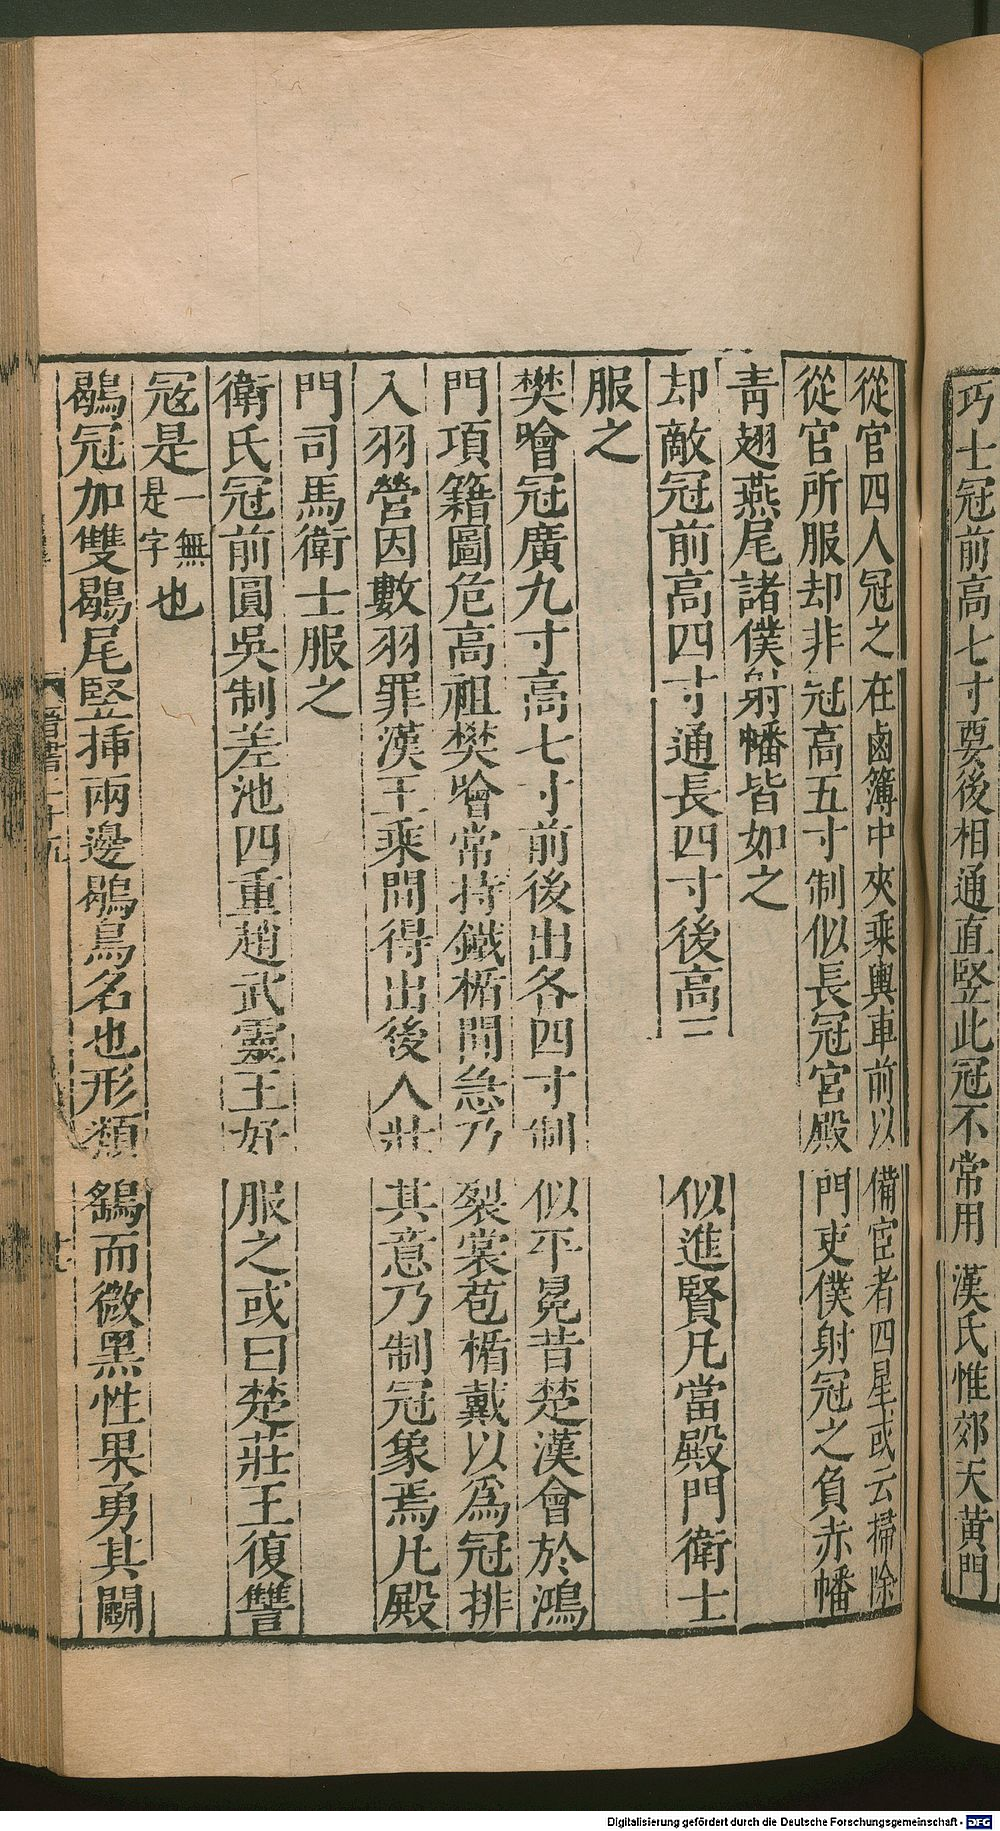 巧士冠前高七寸要後相通直竪此冠不常用漢氏惟郊天黃門
從官四人冠之在鹵簿中夾乘輿車前以備宦者四星或云掃除
從官所服却非冠高五寸制似長冠宮殿門吏僕射冠之負赤幡
靑翅燕尾諸僕射幡皆如之
却敵冠前高四寸通長四寸後高三寸似進賢凡當殿門衛士
服之
樊噲冠廣九寸高七寸前後出各四寸制似平冕昔楚漢會於鴻
門項籍圖危高祖樊噲常持鐵楯聞急乃裂裳苞楯戴以爲冠排
入羽營因數羽罪漢王乘間得出後人壯其意乃制冠象焉凡殿
門司馬衛士服之
衛氏冠前圓吳制差池四重趙武靈王好服之或曰楚莊王復讐
冠是一無是字也
鶡冠加雙鶡尾竪揷兩邊鶡鳥名也形類鷂而微黑性果勇其鬭
晉書二十五
十九
Digitalisierung gefördert durch die Deutsche Forschungsgemeinschaft - DFG